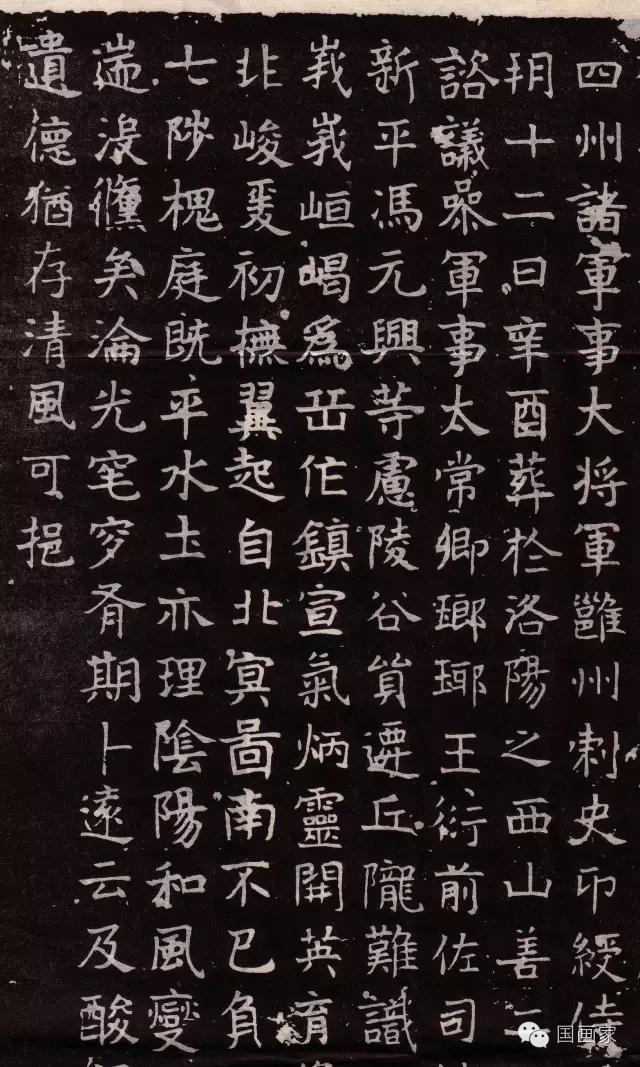 四州諸軍事大将軍雝州刺史印綬
玥十二日辛酉葬於洛陽之西山善
諮議叅軍事太常卿瑯琊王衍前佐司
新平馮元興等慮陵谷貿遷丘隴難識
峩峩峘嵑為岳作鎮宣氣炳靈開英育
北峻爰初撫翼起自北冥圖南不已負
七陟槐庭既平水土亦理陰陽和風變
遄沒儵矣淪光窀穸有期卜遠云及酸
遺德猶存清風可挹
国画家